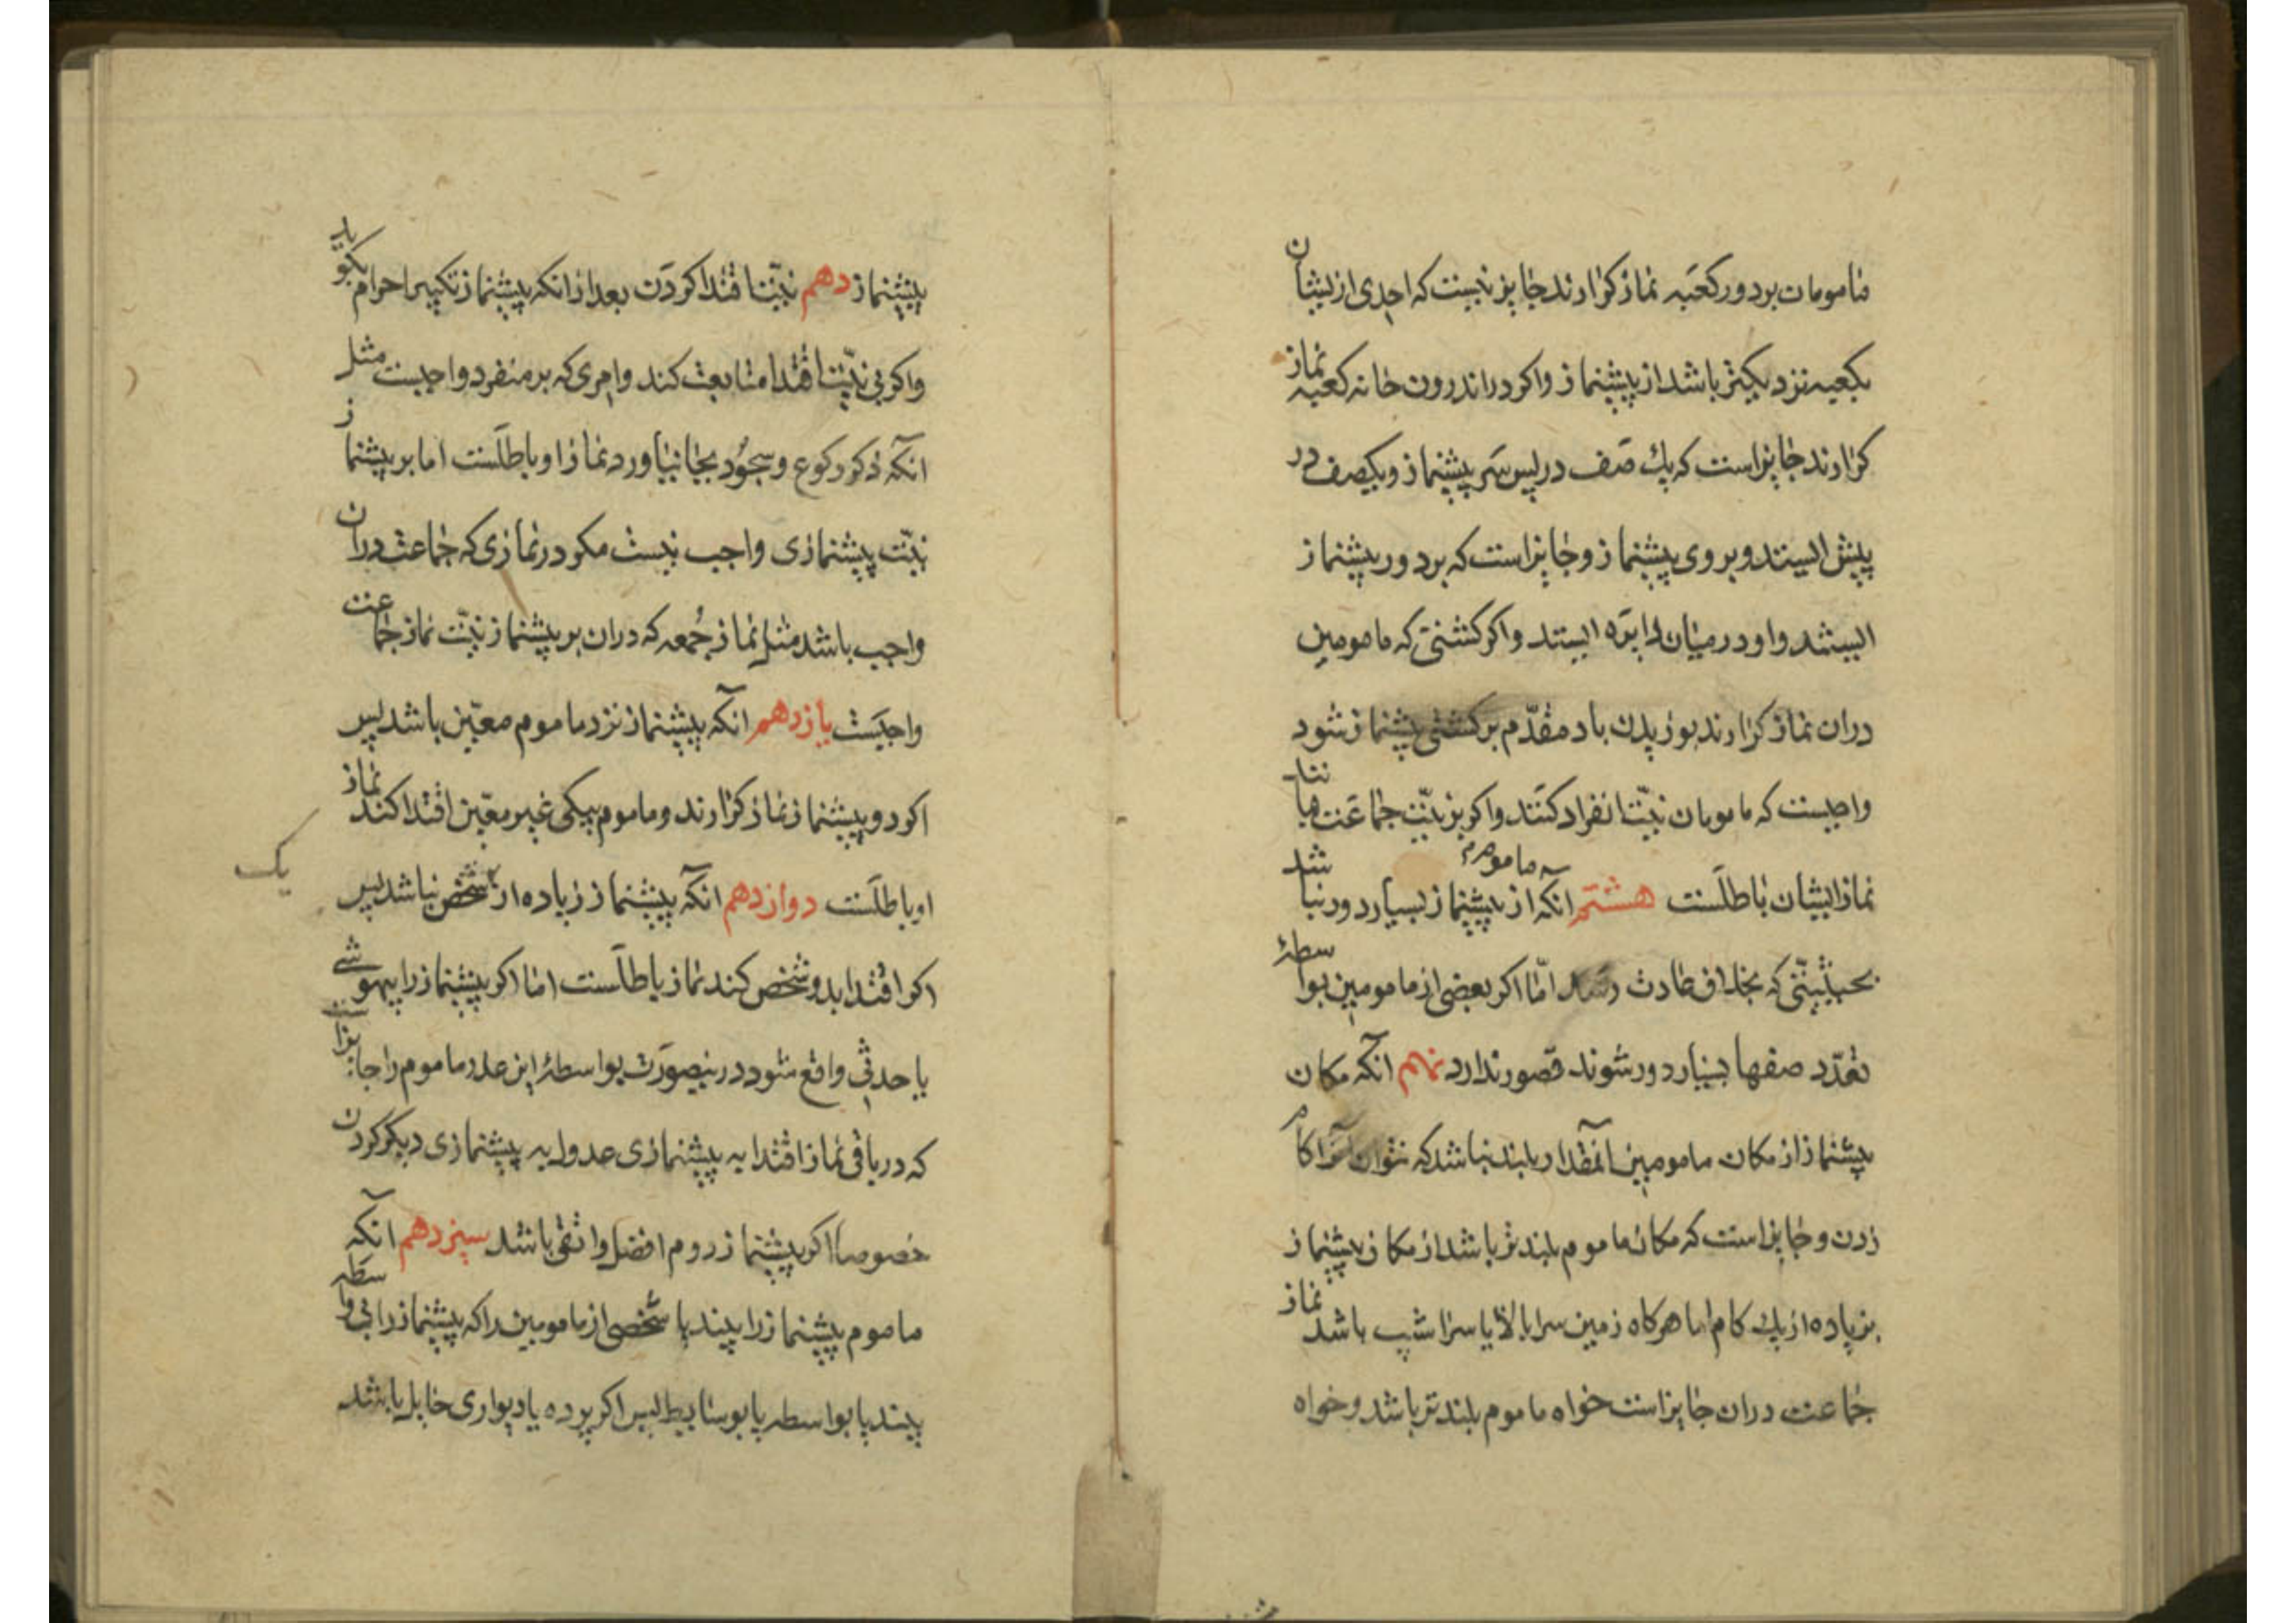 مامومان بر دور کعبه نماز کزارند جایز نیست که احدی از ایشان
بکعبه نزدیکتر باشد از پیشنماز و اکر در اندرون خانه کعبه نماز
کزارند جایز است که یك صف در پس سر پیشنماز و یکصف در
پیش ایستد و بر وی پیشنماز و جایز است که بر دور پیشنماز
ایستند و او در میان دایره ایستد و اکر کشتی که مامومین
در ان نماز کزارند بوزیدن باد مقدّم بر کشتی پیشنماز شود
واجبست که مامومان نیّت انفراد کنند و اکر بر نیّت جماعت باشند
نماز ایشان باطلست هشتم آنکه ماموم از پیشنماز بسیار دور نباشد
بحیثیّتی که بخلاف عادت رسد امّا اکر بعضی از مامومین بواسطهٔ
تعدّد صفها بسیار دور شوند قصور ندارد نهم آنکه مکان
پیشنماز از مکان مامومین آنمقدار بلند نباشد که نتوان آنرا کام
زدن و جایز است که مکان ماموم بلندتر باشد از مکان پیشنماز
بزیاده از یك کام اما هرکاه زمین سرابالا یا سراشیب باشد نماز
جماعت در ان جایز است خواه ماموم بلندتر باشد و خواه
پیشنماز دهم نیّت اقتدا کردن بعد از انکه پیشنماز تکبیر احرام بکوید
و اکر بی نیّت اقتدا متابعت کند و امری که بر منفرد واجبست مثل
انکه ذکر رکوع و سجود بجا نیاورد نماز او باطلست اما بر پیشنماز
نیّت پیشنمازی واجب نیست مکر در نمازی که جماعت در ان
واجب باشد مثل نماز جمعه که در ان بر پیشنماز نیّت نماز جماعت
واجبست یازدهم انکه پیشنماز نزد ماموم معیّن باشد پس
اکر دو پیشنماز نماز کزارند و ماموم بیکی غیر معیّن اقتدا کند نماز
او باطلست دوازدهم انکه پیشنماز زیاده از شخص نباشد پس
یک
اکر اقتدا بدو شخص کند نماز باطلست اما اکر پیشنماز را بیهوشی
یا حدثی واقع شود درینصورت بواسطهٔ این عذر ماموم را جایز است
که در باقی نماز اقتدا به پیشنمازی عدول به پیشنمازی دیکر کردن
خصوصا اکر پیشنماز دوم افضل و اتقی باشد سیزدهم انکه
ماموم پیشنماز را بیند یا شخصی از مامومین را که پیشنماز را بی واسطه
بیند یا بواسطه یا بوسایط پس اکر پرده یا دیواری حایل باشد